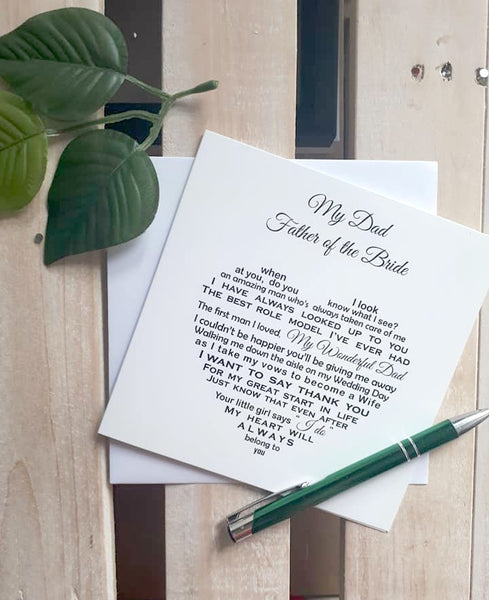 My Dad
Father of the Bride
when I look
at you, do you know what I see?
an amazing man who's always taken care of me
I HAVE ALWAYS LOOKED UP TO YOU
THE BEST ROLE MODEL I'VE EVER HAD
The first man I loved. My Wonderful Dad
I couldn't be happier you'll be giving me away
Walking me down the aisle on my Wedding Day
as I take my vows to become a Wife
I WANT TO SAY THANK YOU
FOR MY GREAT START IN LIFE
JUST KNOW THAT EVEN AFTER
Your little girl says "I do"
MY HEART WILL
ALWAYS
belong to
you